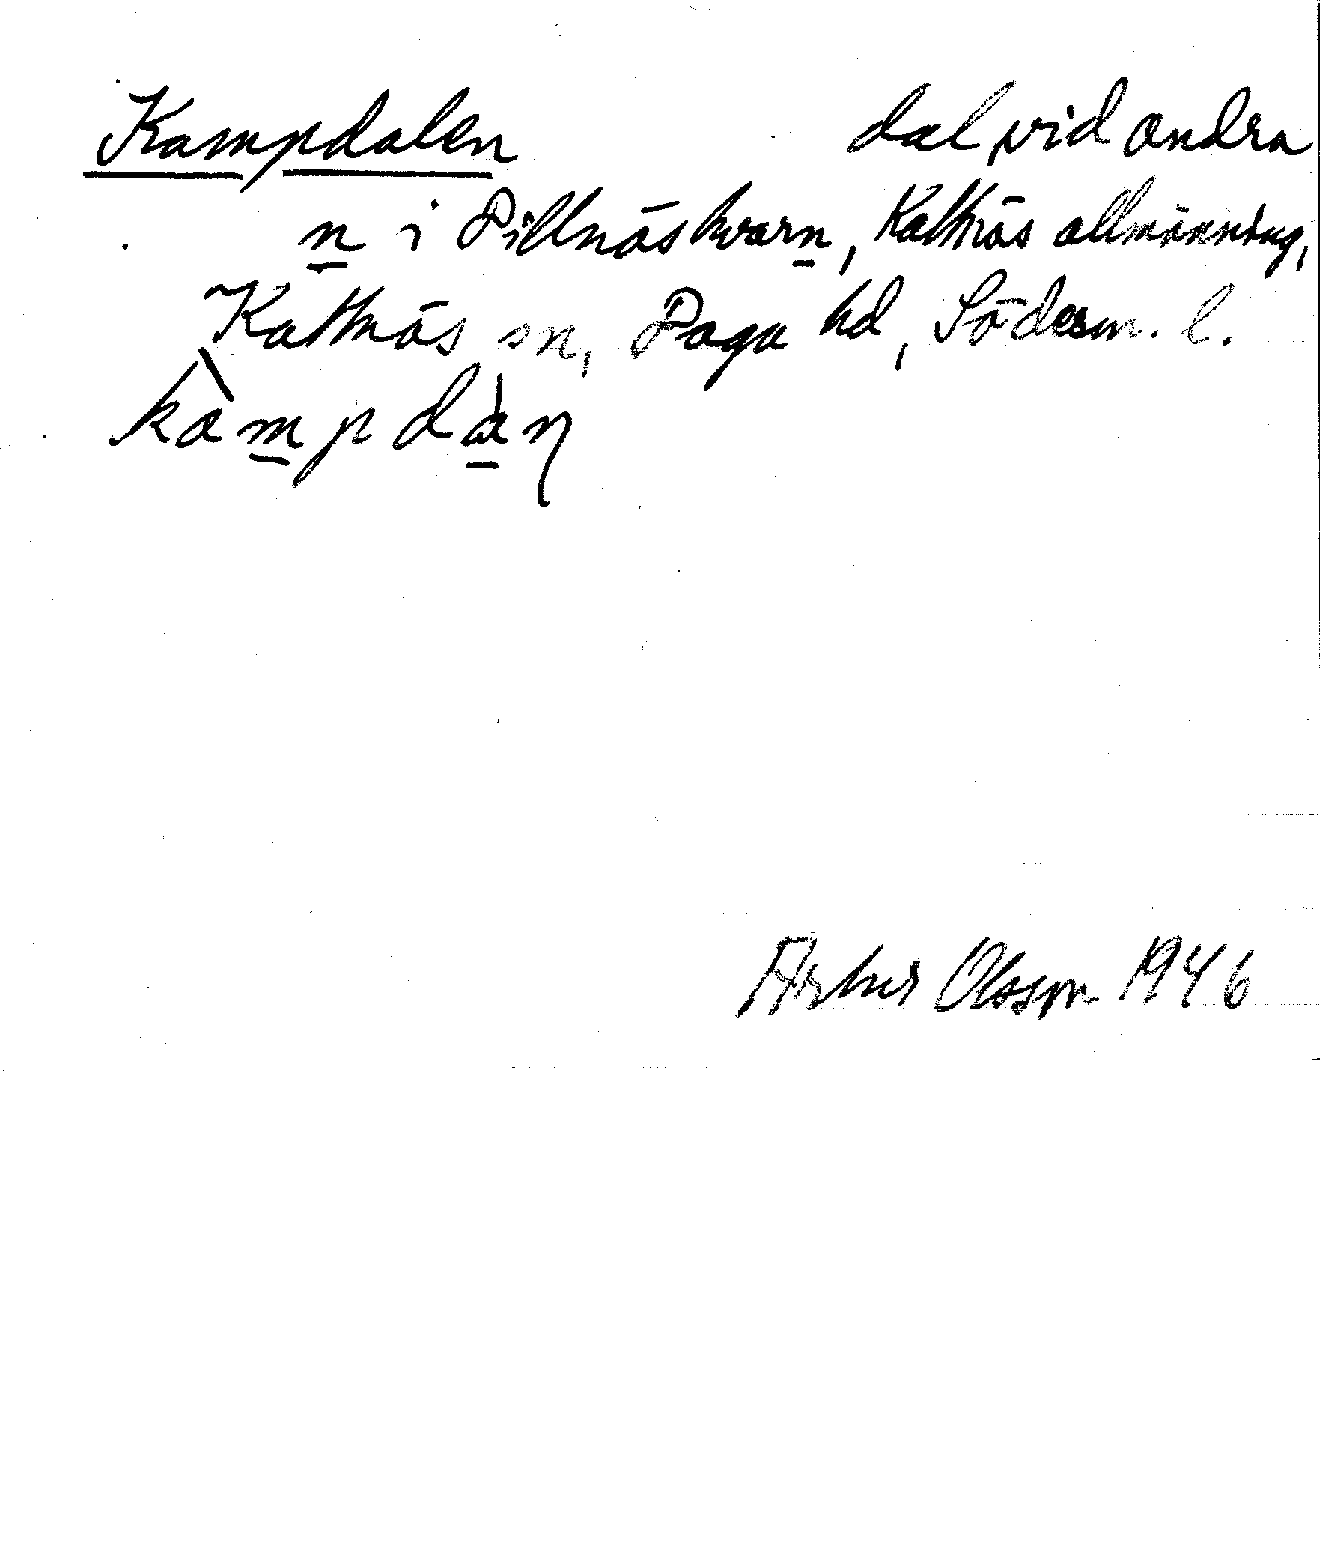 Kampdalen dal vid andra
n i Pillnäskvarn, Kattnäs allmänning,
Kattnäs sn, Daga hd, Söderm. l.
kàmpdàn
Arthur Olsson 1946